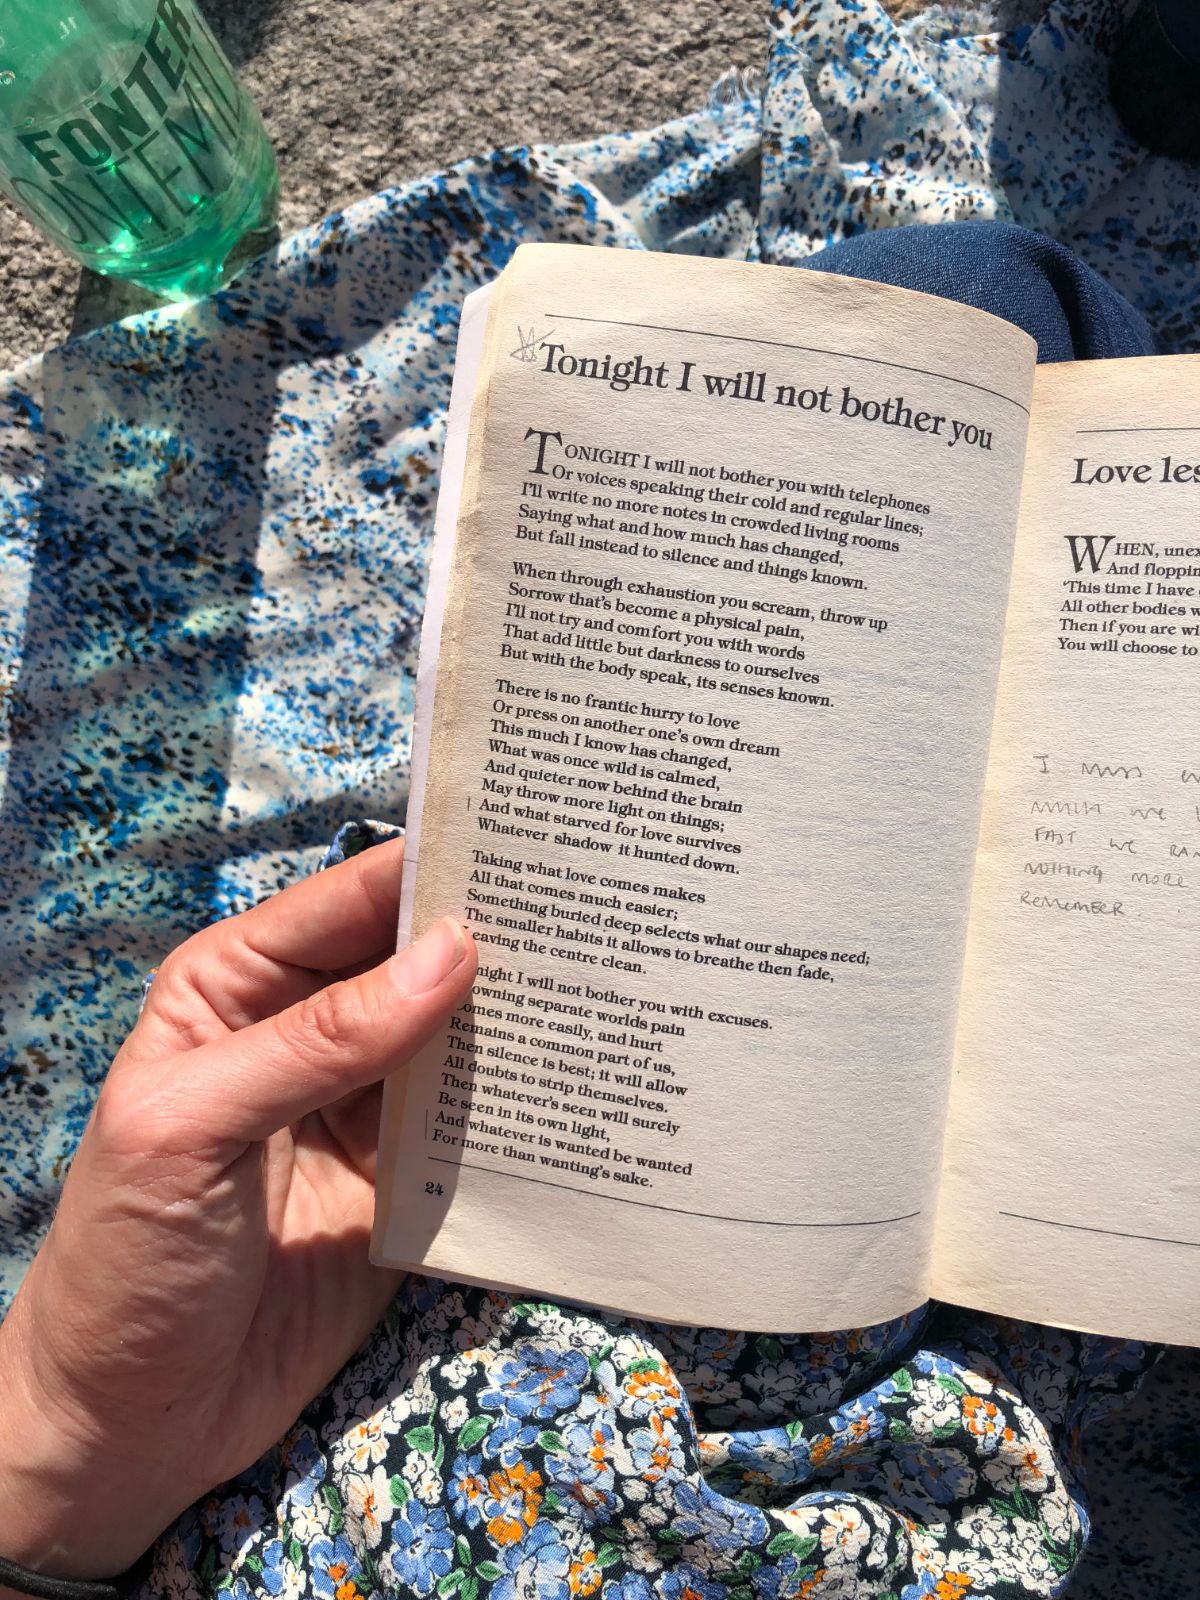 1L
FONTER
ONTEM
Tonight I will not bother you
TONIGHT I will not bother you with telephones
Or voices speaking their cold and regular lines;
I'll write no more notes in crowded living rooms
Saying what and how much has changed,
But fall instead to silence and things known.
When through exhaustion you scream, throw up
Sorrow that's become a physical pain,
I'll not try and comfort you with words
That add little but darkness to ourselves
But with the body speak, its senses known.
There is no frantic hurry to love
Or press on another one's own dream
This much I know has changed,
What was once wild is calmed,
And quieter now behind the brain
May throw more light on things;
And what starved for love survives
Whatever shadow it hunted down.
Taking what love comes makes
All that comes much easier;
Something buried deep selects what our shapes need;
The smaller habits it allows to breathe then fade,
eaving the centre clean.
night I will not bother you with excuses.
owning separate worlds pain
omes more easily, and hurt
Remains a common part of us,
Then silence is best; it will allow
All doubts to strip themselves.
Then whatever's seen will surely
Be seen in its own light,
And whatever is wanted be wanted
For more than wanting's sake.
24
Love les
WHEN, unex
And floppin
'This time I have
All other bodies w
Then if you are wi
You will choose to
I MISS
WE
FAST WE RAN
NOTHING MORE
REMEMBER . .